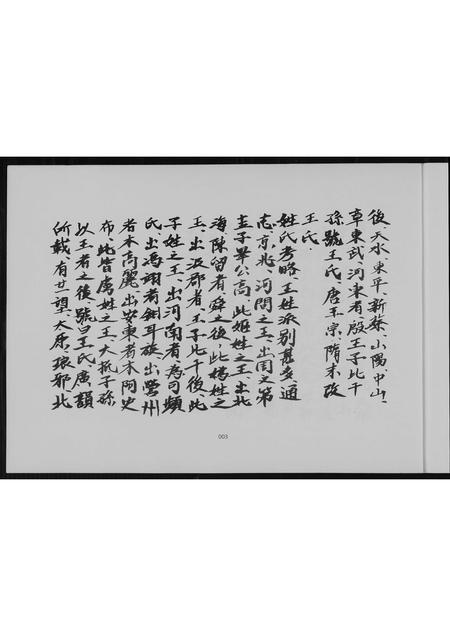 後天水、東平、新蔡、山陽、中山、
章東武、河東者、殷王子比干
孫號王氏、唐王宗、隋末改
王氏.
姓氏考略、王姓派別甚多、通
志、京兆、河間之王、出周文第
子畢公高、此姬姓之王、出北
海陳留者、舜之後、此媯姓之
王、出汲郡者、王子比干後、此
子姓之王、出河南者、為可頻
氏、出馮翊者、鉗耳族、出營州
者、本高麗、出安東者、本阿史
布、此皆虜姓之王、大抵子孫
以王者之後、號曰王氏、廣韻
所載、有廿一望、太原、琅邪、北
003